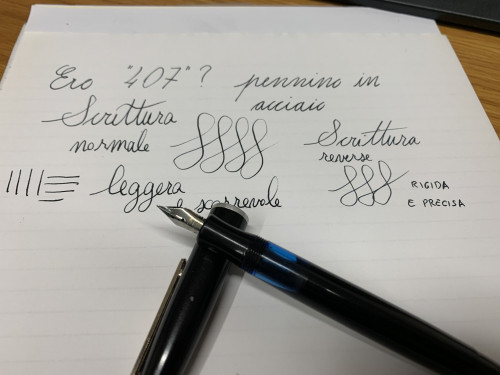 Ero "407"? pennino in
acciaio
Scrittura
normale
Scrittura
reverse
leggera
e scorrevole
RIGIDA
E PRECISA